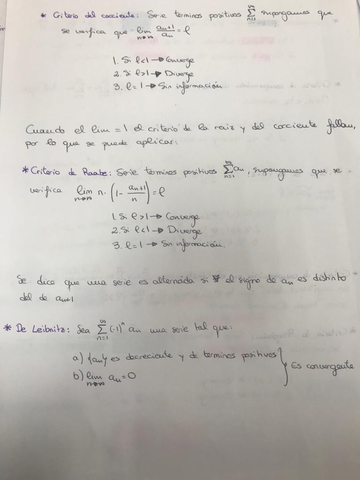 * Criterio del cociente: Serie términos positivos ∑_{n=1}^{∞} supongamos que
se verifica que lim_{n→∞} a_{n+1}/a_n = l
1. Si l<1 → Converge
2. Si l>1 → Diverge
3. l=1 → Sin información
Cuando el lim = 1 el criterio de la raiz y del cociente fallan,
por lo que se puede aplicar:
* Criterio de Raabe: Serie términos positivos ∑_{n=1}^{∞} a_n, supongamos que se
verifica lim_{n→∞} n·(1 - a_{n+1}/n) = l
1. Si l>1 → Converge
2. Si l<1 → Diverge
3. l=1 → Sin información.
Se dice que una serie es alternada si el signo de a_n es distinto
del de a_{n+1}
* De Leibnitz: Sea ∑_{n=1}^{∞} (-1)^n a_n una serie tal que:
a) {a_n} es decreciente y de términos positivos
b) lim_{n→∞} a_n = 0
} Es convergente